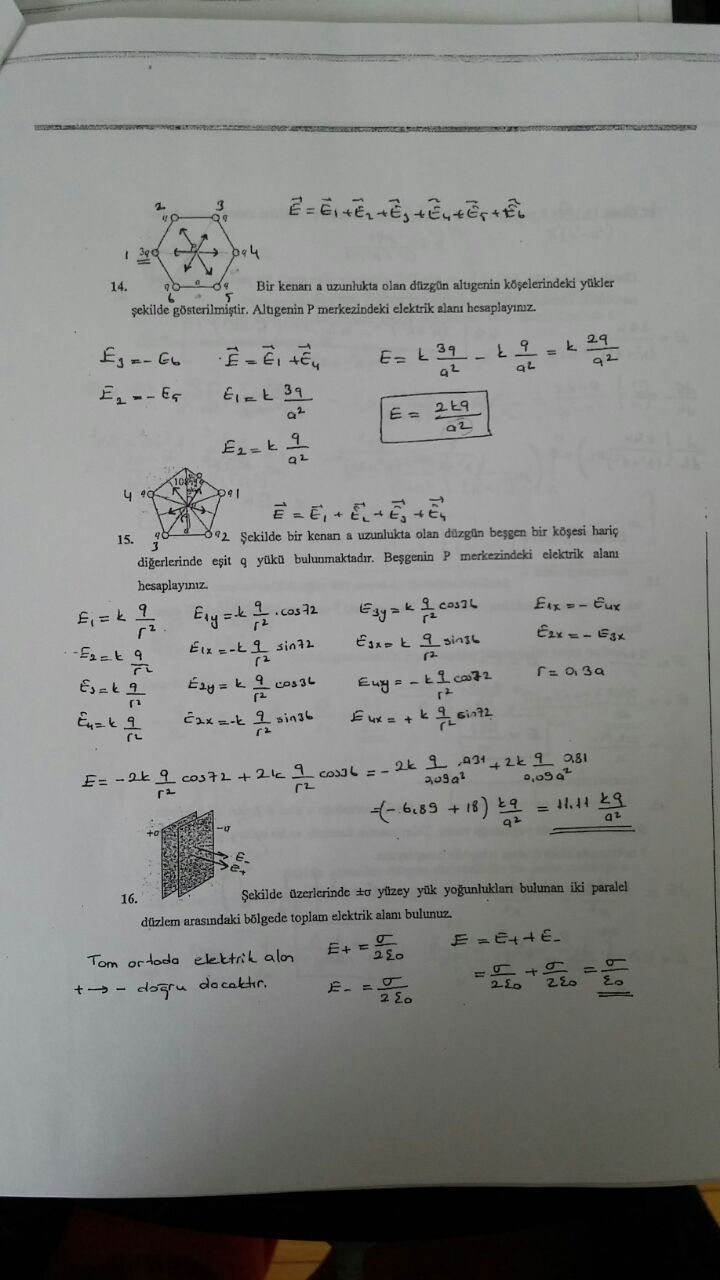 2 3
1 3q q 4
6 5
E⃗ = E⃗1 + E⃗2 + E⃗3 + E⃗4 + E⃗5 + E⃗6
14. Bir kenarı a uzunlukta olan düzgün altıgenin köşelerindeki yükler
şekilde gösterilmiştir. Altıgenin P merkezindeki elektrik alanı hesaplayınız.
E3 = - E6 E⃗ = E⃗1 + E⃗4 E = k 3q/a² - k q/a² = k 2q/a²
E2 = - E5 E1 = k 3q/a² E = 2kq/a²
E2 = k q/a²
4 q q 1
3 q q 2
E⃗ = E⃗1 + E⃗2 + E⃗3 + E⃗4
15. Şekilde bir kenarı a uzunlukta olan düzgün beşgen bir köşesi hariç
diğerlerinde eşit q yükü bulunmaktadır. Beşgenin P merkezindeki elektrik alanı
hesaplayınız.
E1 = k q/r² E1y = -k q/r² . cos72 E3y = k q/r² cos36 E1x = - E4x
E2 = k q/r² E1x = -k q/r² sin72 E3x = k q/r² sin36 E2x = - E3x
E3 = k q/r² E2y = k q/r² cos36 E4y = - k q/r² cos72 r = 0,3a
E4 = k q/r² E2x = -k q/r² sin36 E4x = + k q/r² sin72
E = -2k q/r² cos72 + 2k q/r² cos36 = - 2k q/0,09a² .0,31 + 2k q/0,09a² 0,81
= (-6,89 + 18) kq/a² = 11.11 kq/a²
+σ -σ
E-
E+
16. Şekilde üzerlerinde ±σ yüzey yük yoğunlukları bulunan iki paralel
düzlem arasındaki bölgede toplam elektrik alanı bulunuz.
Tam ortada elektrik alan E+ = σ/2ε0 E = E+ + E-
+ → - doğru olacaktır. E- = σ/2ε0 = σ/2ε0 + σ/2ε0 = σ/ε0